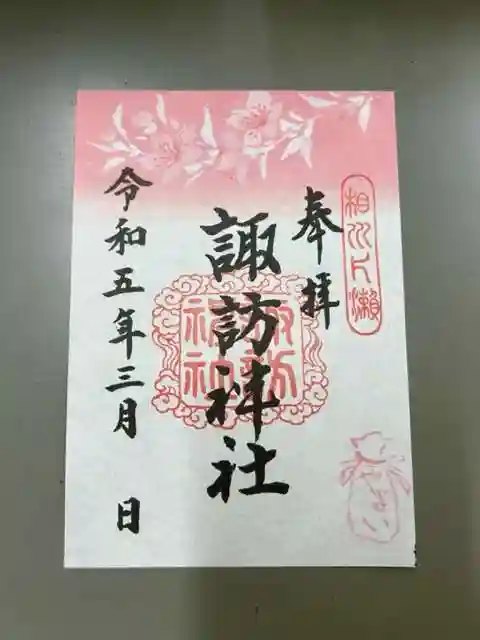 相州片瀬
奉拝
諏訪神社
諏訪神社
令和五年三月 日